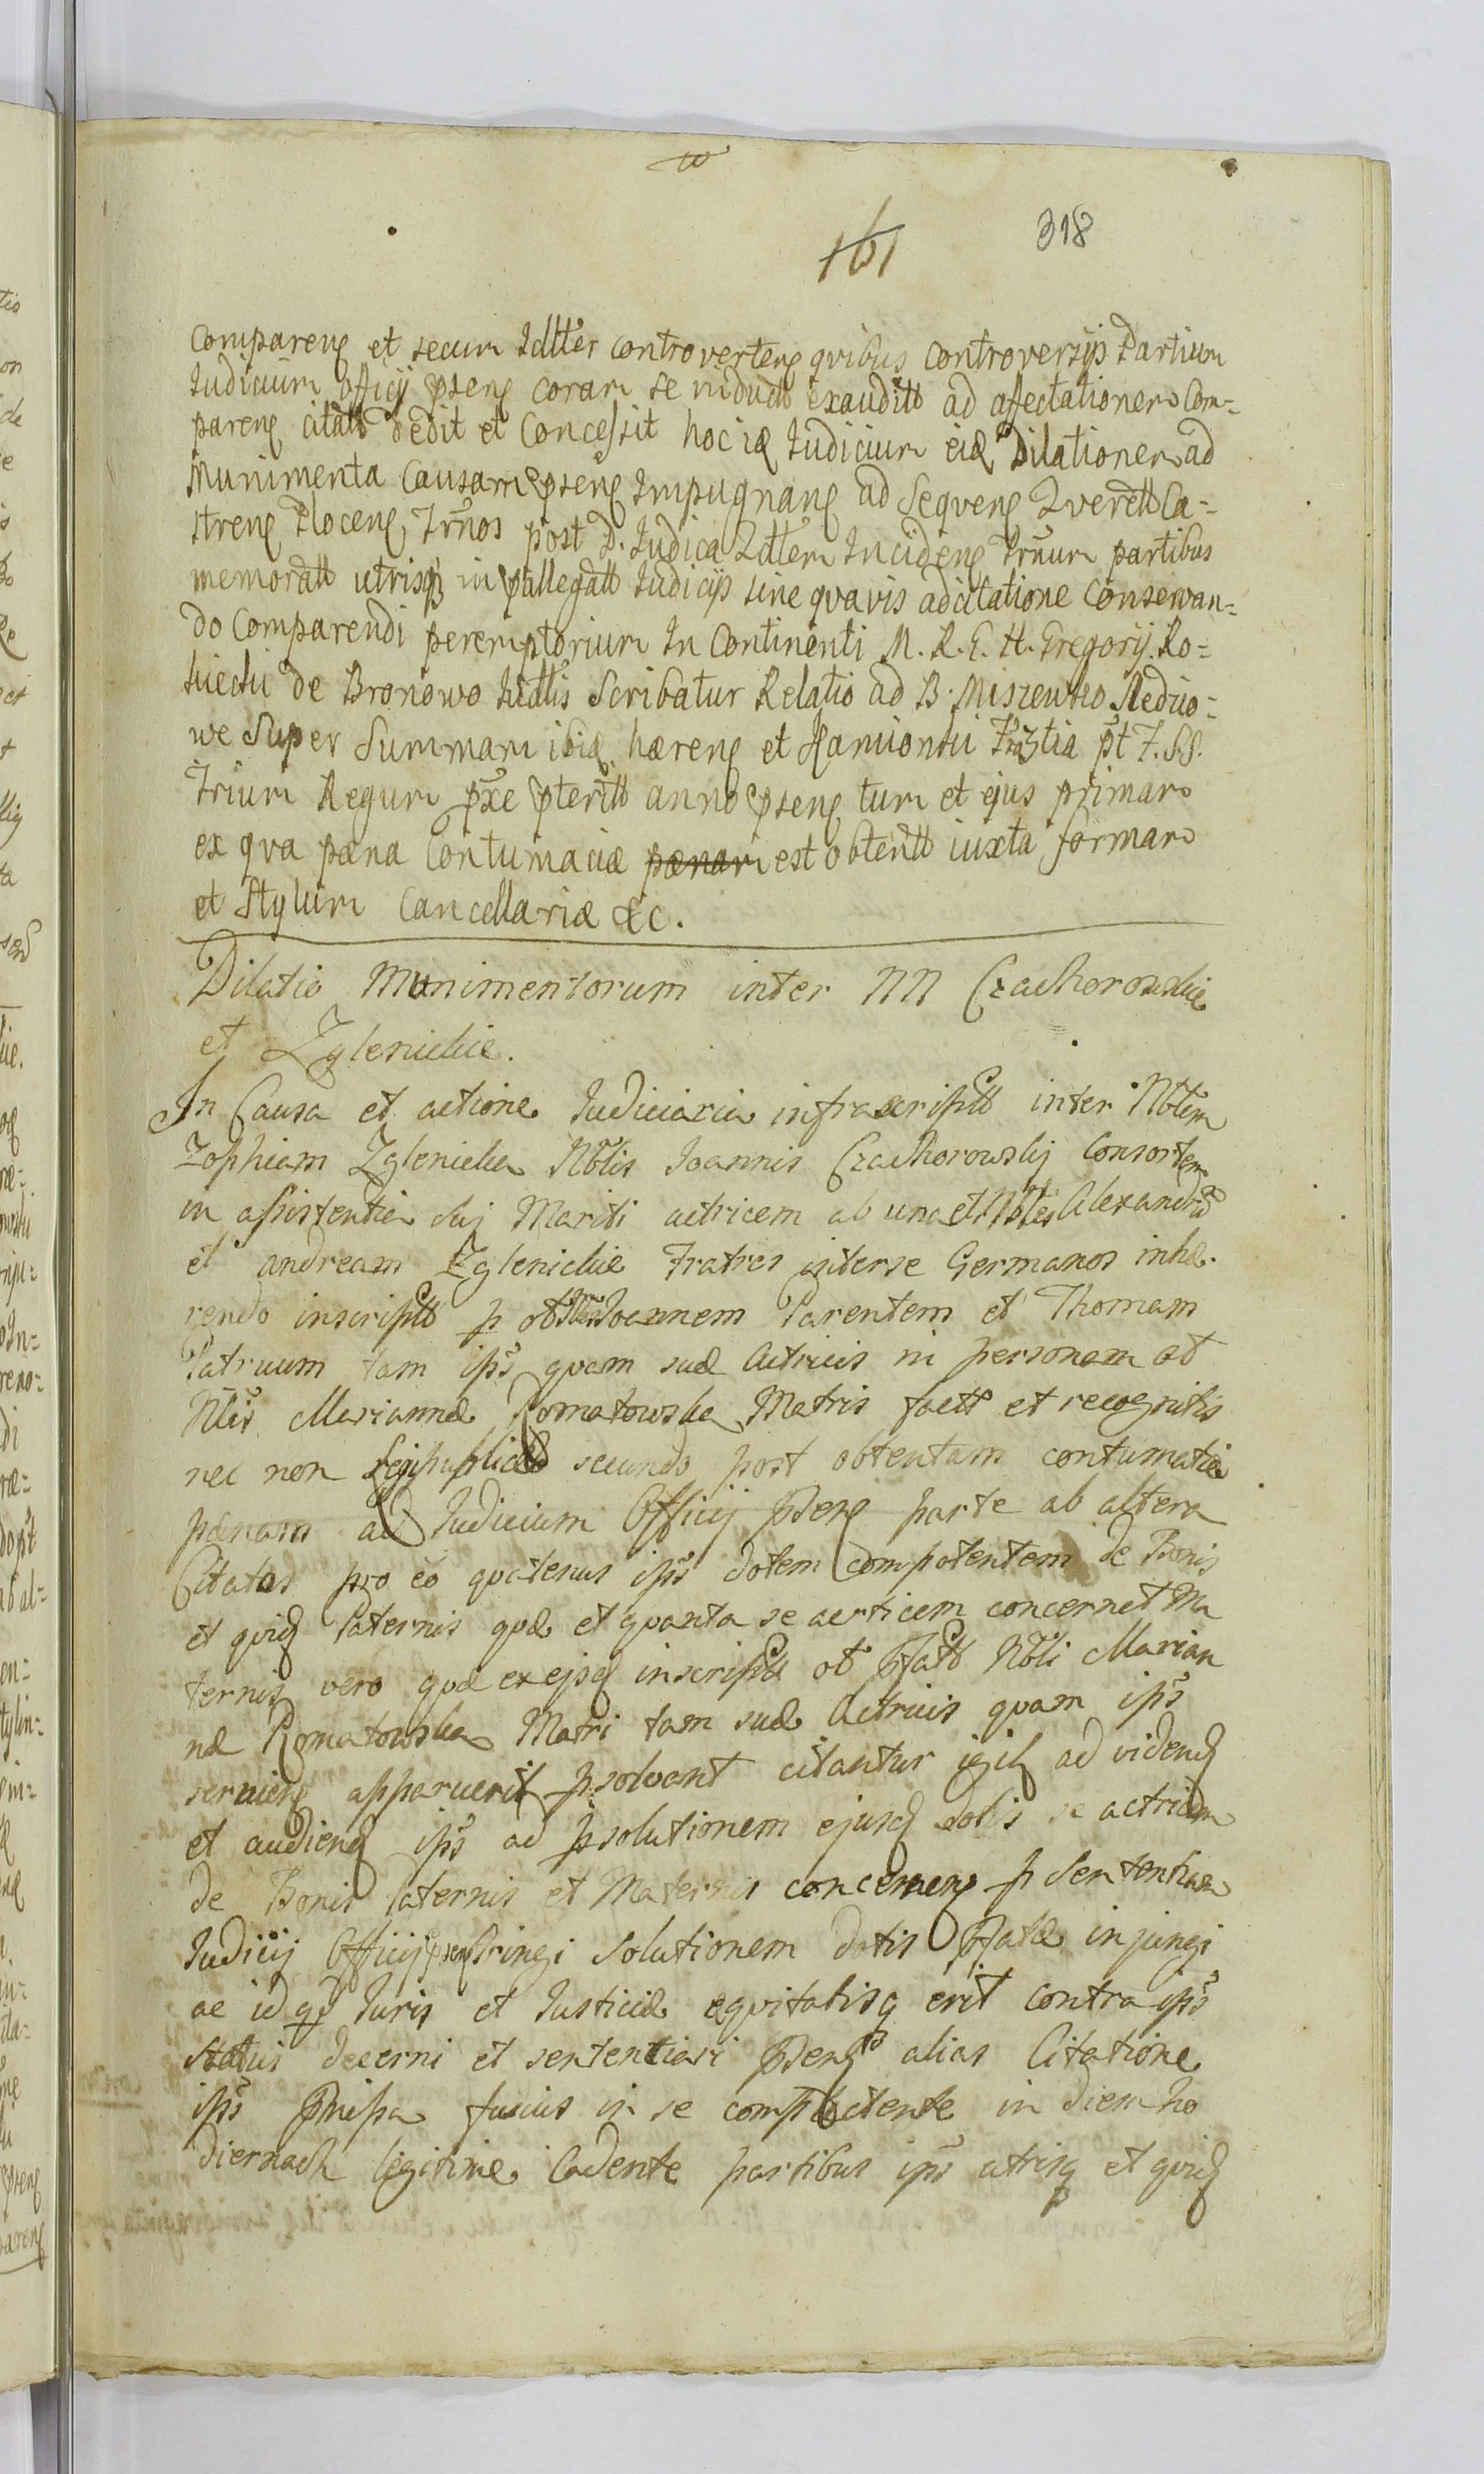 161
318
Comparenς et secum Idltter controvertenς qvibus controversijs Partium
Iudicium officij pſtenς coram se exauditt ad affectationem Com-
parenς citatt dedit et Concessit hoc iд Iudicium eiд Dilationem ad
Munimenta Causam pſtenς Impugnanς ad Seqvenς Qverett Ca-
strenς Plocenς Trnos post D. Iudica Idltem Incidenς Trnum partibus
memoratt utrisqз in pallegatt Iudicijs sine qvavis adcitatione Conservan-
do Comparendi peremptorium In Continenti M. R. G. H. Gregorij Ro-
sciechi de Bronowo Iudltis Scribatur Relatio ad B. Miszewko Stedzio-
we Super Summam ibiд haerenς et pt F. SS.
Trium Regum pxe pteritt anno pſtenς tum et ejus primam
ex qva paena Contumaciae paenam est obtentt iuxta formam
et Stylum Cancellariae &c.
Dilatio Munimentorum inter NN Czachorowskie
et Zglenickie.
In Causa et actione Iudiciaria infrascriptt inter Nbtem
Zophiam Zglenicka Nbtis Ioannis Czachorowskij Consortem
in assistentia Suj Mariti actricem ab una et Nbtes Alexandrū
et andream Zglenickie Fratres inter se Germanos inhae-
rendo inscriptt p ot Nbtes Ioannem Parentem et Thomam
Patruum tam ips qvam suae Actricis in personam ot
Nbtis Mariannae Romatowska Matris factt et recognitis
nec non secundo post obtentam contumaciae
paenam ad Iudicium Officij pſenς parte ab altera
Citatos pro eo qvatenus ips dotem Competentem de Bonis
et qvidς Paternis qvae et qvanta se acrticem concernet Ma
ternis vero qvae ex ejsς inscriptt ot pfatt Nbti Marian
nae Romatowska Matri tam suae Actricis qvam ips
servienς apparuerit psolvant citantur igiς ad videnς
et audienς ips ad psolutionem ejusς dotis se actricem
de Bonis Paternis et Maternis concernenς p Sententiam
Iudicij Officij pſenς stringi Solutionem dotis pfatae injungi
ac id qς Iuris et Iusticiae eqvitatisq erit contra ips
Status decerni et sententiari pſenς alias Citatione
ips fusius in se complectente in diem ho
diernam legitime Cadente partibus ips utrisq et qvidς